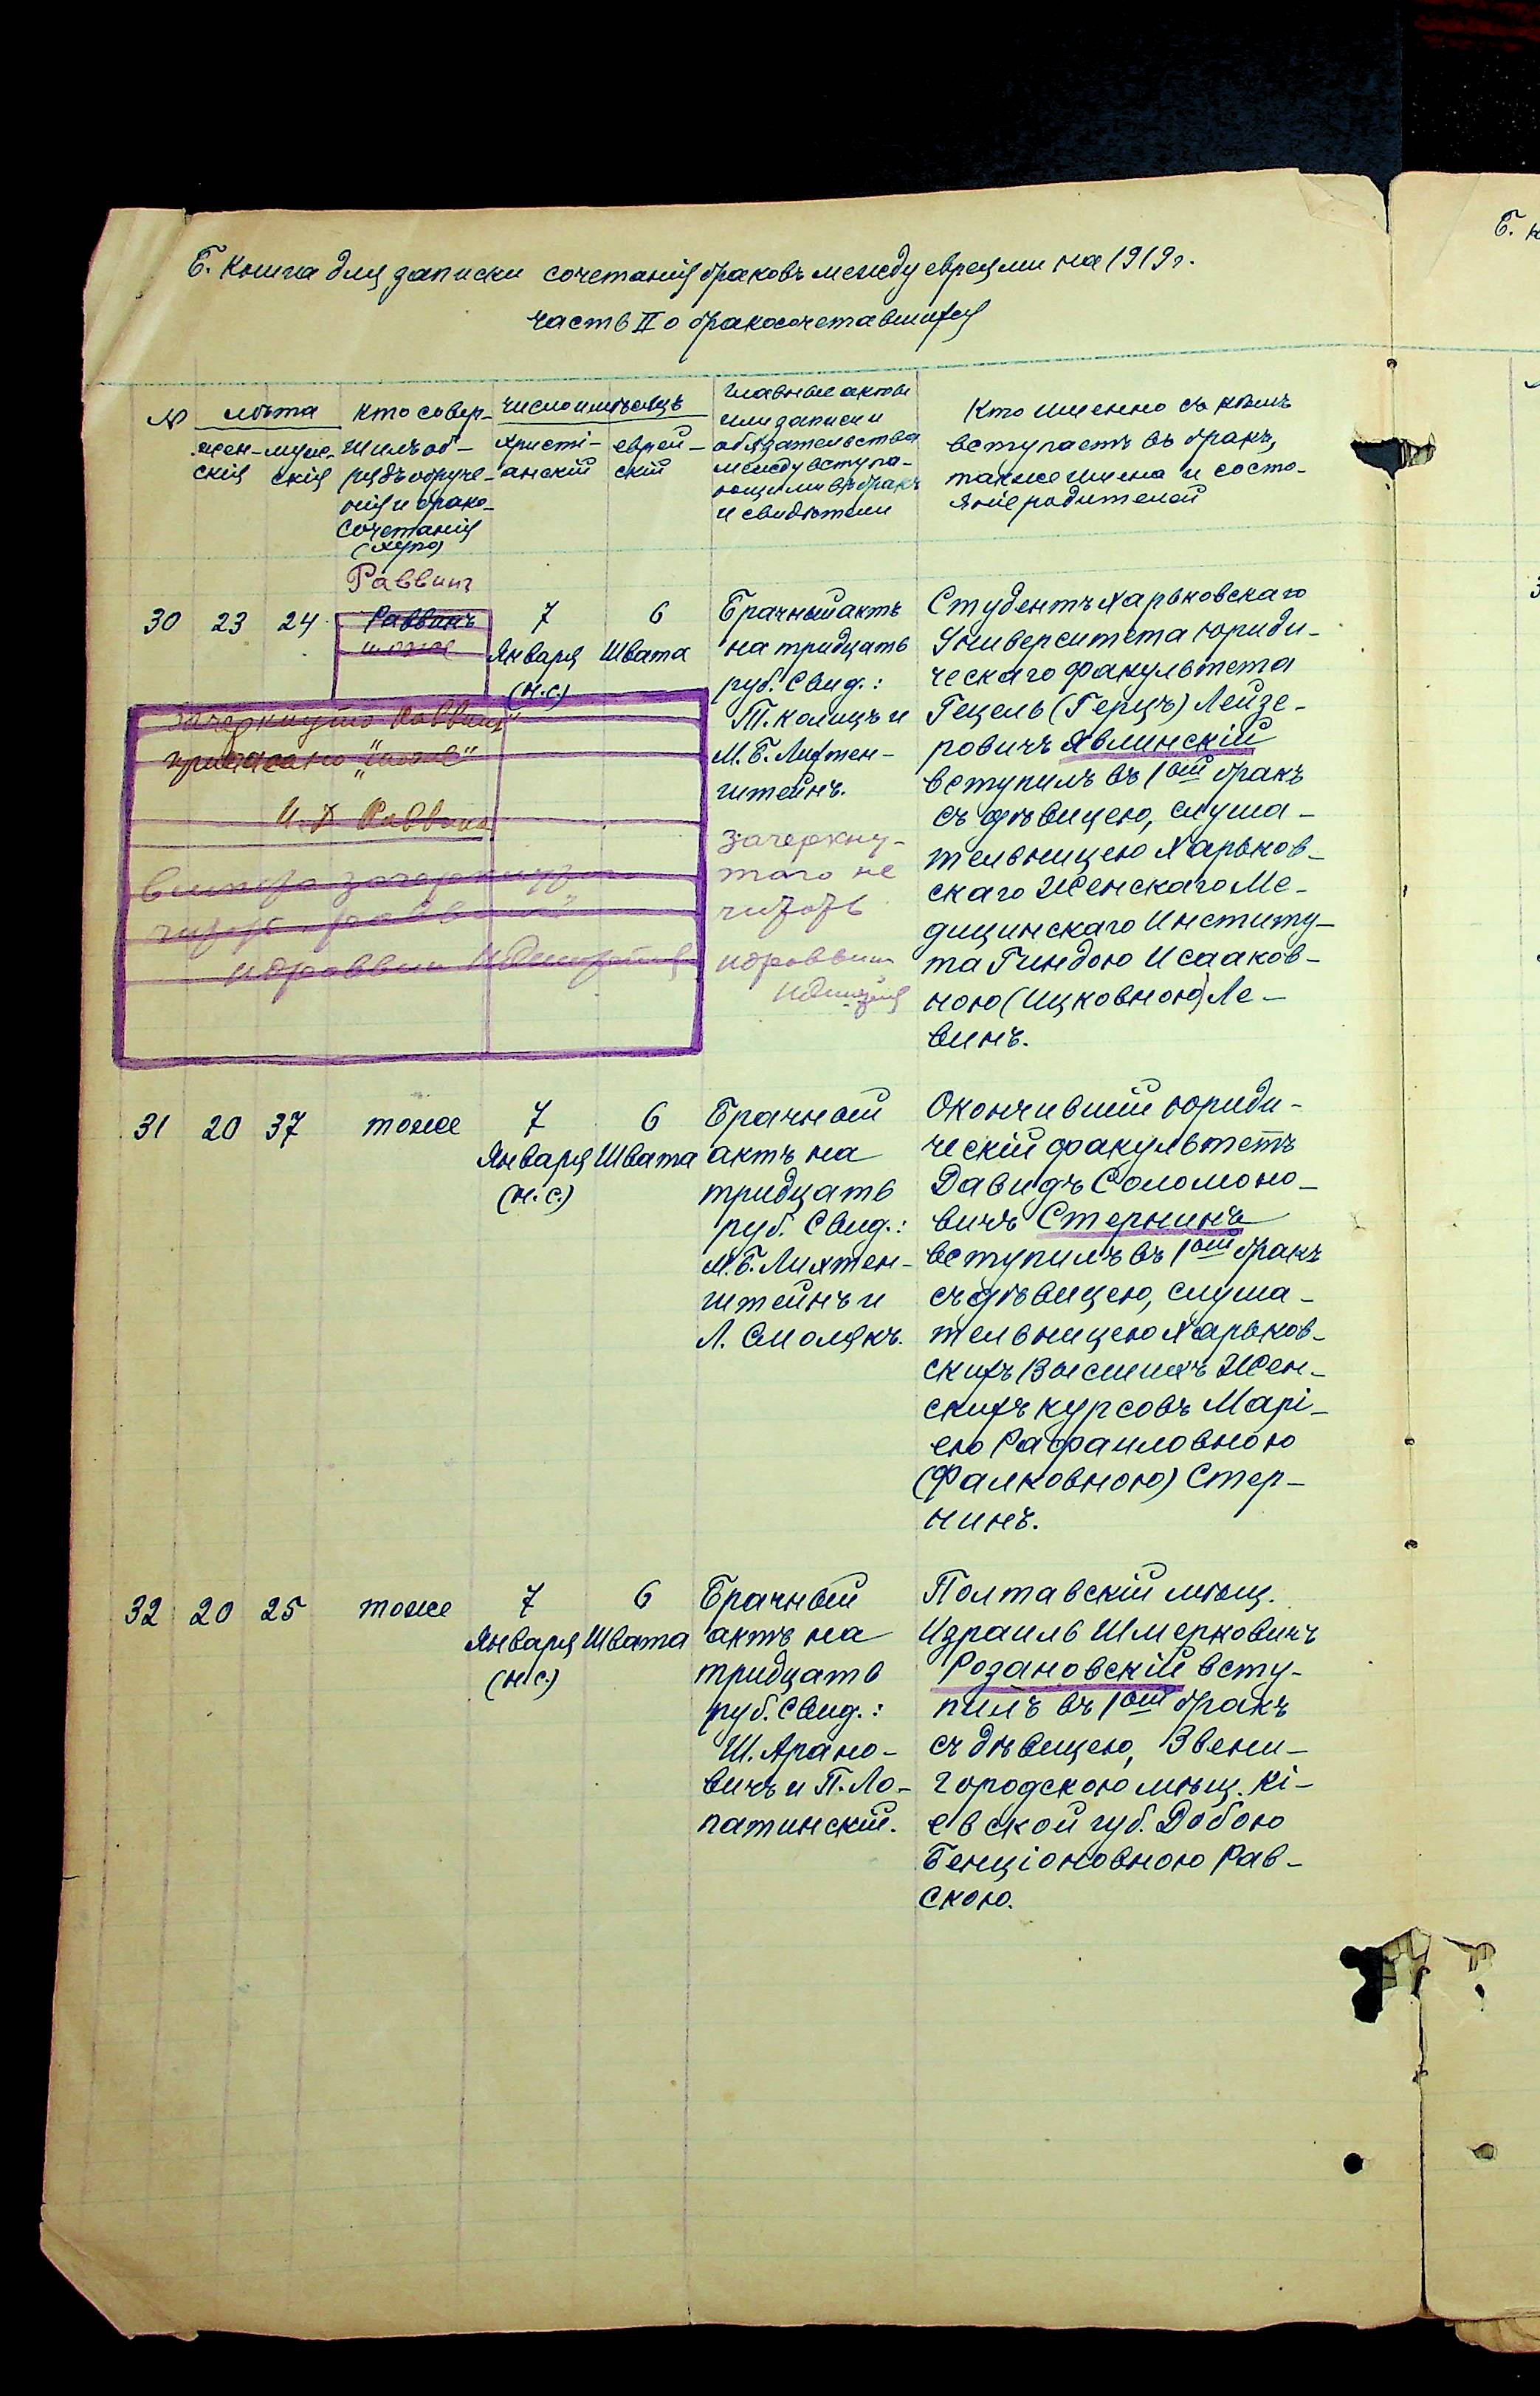 Б. Книга для записки сочетанія браковъ между евреями на 1919 г.
часть II о бракосочетавшихся
№
лѣта
жен-
скія
муж-
скія
Кто совер-
шилъ об-
рядъ обруче-
нія и брако-
сочетанія
(хупо)
число и мѣсяцъ
христі-
анскій
еврей-
скій
Главные акты
или записи и
обязательства
между вступа-
ющими въ бракъ
и свидѣтели
Кто именно съ кѣмъ
вступаетъ въ бракъ,
также имена и состо-
яніе родителей
30
23
24
Раввинъ
Раввинъ
тоже
7
Января
(н.с.)
6
Швата
Зачеркнуто Раввинъ
приписано "тоже"
И. д. Раввина
вмѣсто зачеркнутаго
читать "раввинъ"
Брачный актъ
на тридцать
руб. Свид.:
М. Б. Лихтен-
штейнъ.
зачеркну-
таго не
читать
Студентъ Харьковскаго
Университета юриди-
ческаго факультета
Гецель (Герцъ) Лейзе-
ровичъ Явлинскій
вступилъ въ 1ый бракъ
съ дѣвицею, слуша-
тельницею Харьков-
скаго Женскаго Ме-
дицинскаго Институ-
та Гиндою Исааков-
ною (Ицковною) Ле-
винъ.
31
20
37
тоже
7
Января
(н.с.)
6
Швата
Брачный
актъ на
тридцать
руб. Свид.:
М. Б. Лихтен-
штейнъ и
Л. Смолякъ.
Окончившій юриди-
ческій факультетъ
Давидъ Соломоно-
вичъ Стернинъ
вступилъ въ 1ый бракъ
съ дѣвицею, слуша-
тельницею Харьков-
скихъ Высшихъ Жен-
скихъ курсовъ Марі-
ею Рафаиловною
(Фалковною) Стер-
нинъ.
32
20
25
тоже
7
Января
(н.с.)
6
Швата
Брачный
актъ на
тридцать
руб. Свид.:
Ш. Арано-
вичъ и П. Ло-
патинскій.
Полтавскій мѣщ.
Израиль Шмерковичъ
Розановскій всту-
пилъ въ 1ый бракъ
съ дѣвицею, Звени-
городскою мѣщ. Кі-
евской губ. Добою
Бенціоновною Рав-
скою.